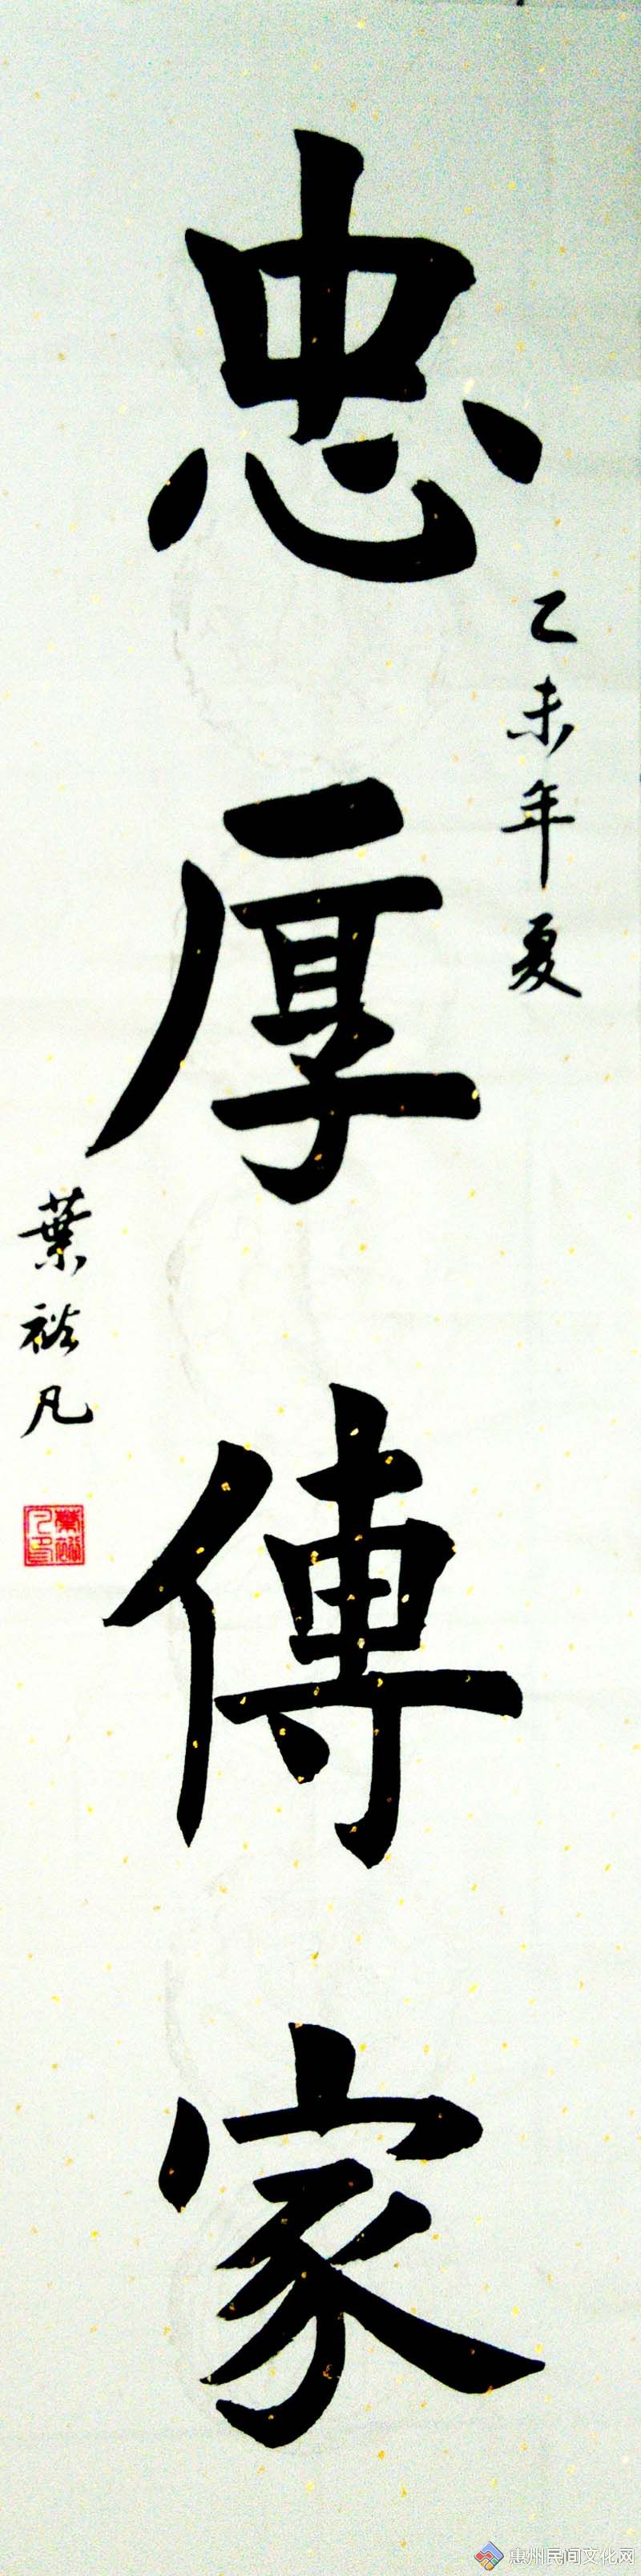 乙未年夏
忠厚傳家
葉裕凡
惠州民间文化网